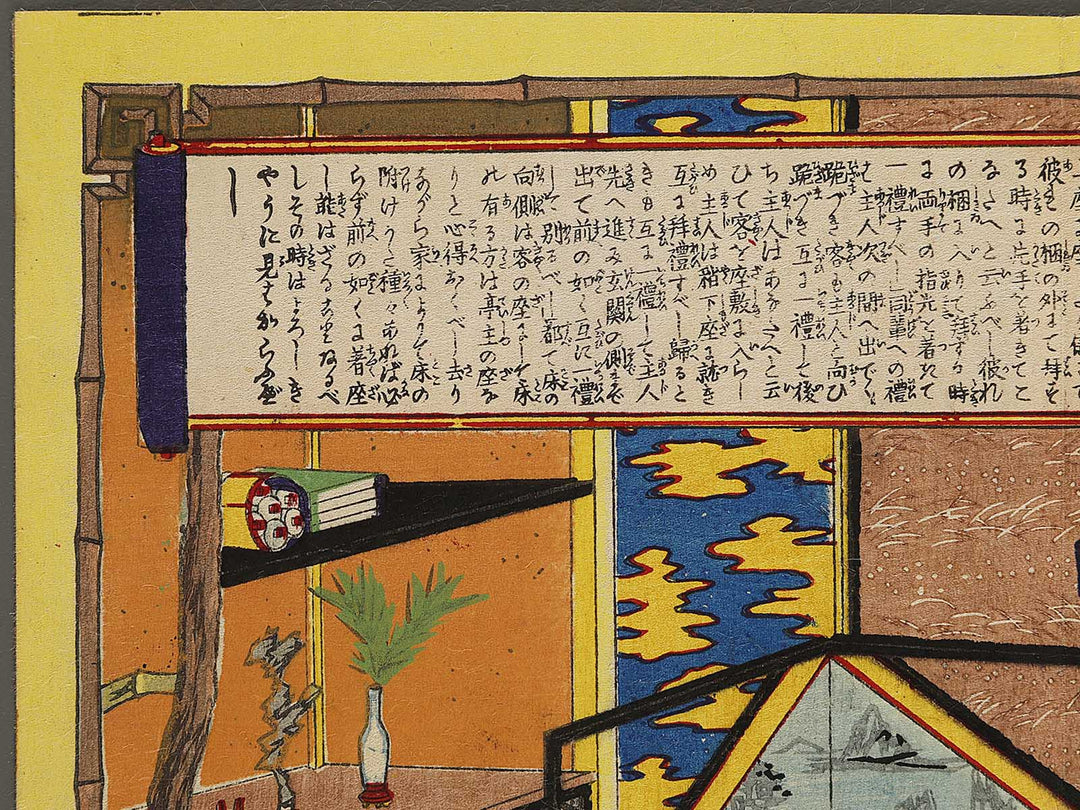 る時は片手を着きてこ
なたへと云ふべし彼れ
の梱に入りて拜する時
は両手の指先を着けて
一禮すべし同輩への禮
は主人次の間へ出でゝ
跪づき客も主人と向ひ
跪づき互に一禮して後
ち主人はあなたへと云
ひて客を座敷に入らし
め主人は稍下座に跪き
互に拜禮すべし歸ると
きも互に一禮して主人
先へ進み玄關の側まで
出て前の如く互に一禮
して別るべし都て床の
向側は客の座にして床
の有る方は亭主の座な
りと心得おくべし去り
ながら家によりて床の
附けかた種々あれば必
らず前の如くに著座
しその時はよろしき
やうに見はからふべ
し